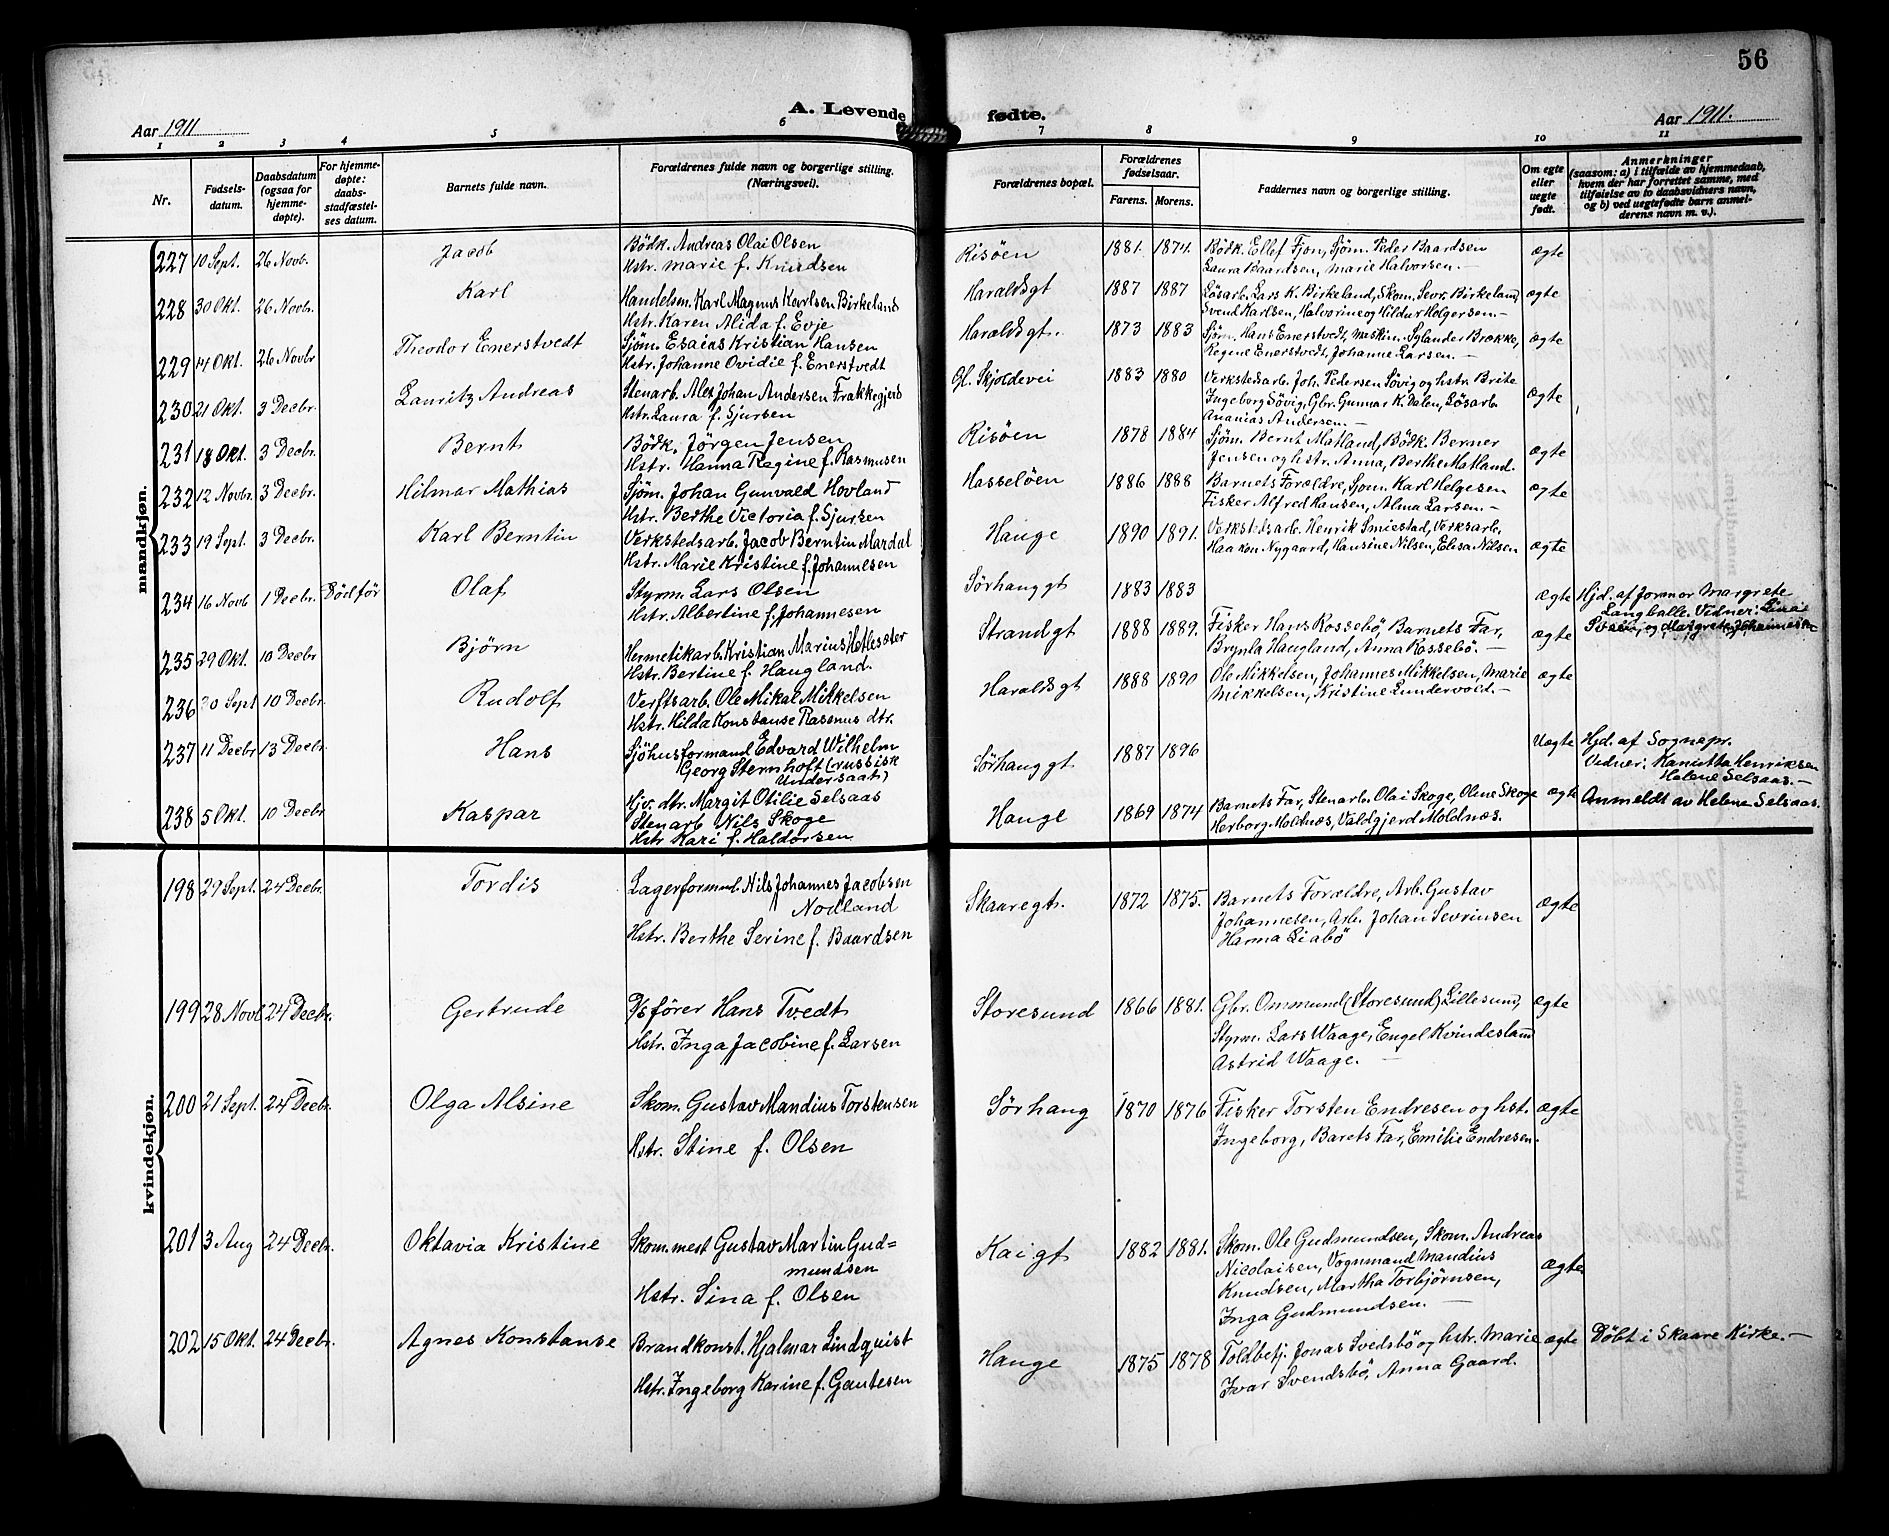 56
A. Levende fødte.
Aar 1911
Aar 1911.
1 2 3 4 5 6 7 8 9 10 11
Nr.
Fødsels-
datum.
Daabsdatum
(ogsaa for
hjemme-
døpte).
For hjemme-
døpte:
daabs-
stadfæstel-
ses datum.
Barnets fulde navn.
Forældrenes fulde navn og borgerlige stilling.
(Næringsvei).
Forældrenes bopæl.
Forældrenes
fødselsaar.
Farens. Morens.
Faddernes navn og borgerlige stilling.
Om egte
eller
uegte
født.
Anmerkninger
(saasom: a) i tilfælde av hjemmedaab,
hvem der har forrettet samme, med
tilføielse av to daabsvidners navn,
og b) ved uegtefødte barn anmel-
derens navn m. v.).
mandkjøn.
227 10 Sept. 26 Novb. Jacob
Bødk. Andreas Olai Olsen
Hstr. Marie f. Knudsen
Risöen 1881. 1874.
Bödk. Ellef Fjon, Sjöm. Peder Baardsen
Laura Baardsen, Marie Halvorsen.—
ægte
228 30 Okt. 26 Novbr. Karl
Handelsm. Karl Magnus Karlsen Birkeland
Hstr. Karen Alida f. Evje
Haraldsgt 1887 1887
Lösarb. Lars K. Birkeland, Skom. Sevr. Birkeland
Svend Karlsen, Halvorine og Hildur Holgersen.—
ægte
229 14 Okt. 26 Novbr Theodor Enerstvedt
Sjöm. Esaias Kristian Hansen
Hstr. Johanne Ovidie f. Enerstvedt
Haraldsgt. 1873 1883
Sjöm. Hans Enerstvedt, Maskin. Sylander Brække,
Regine Enerstvedt, Johanne Larsen.—
ægte
230 21 Okt. 3 Decbr. Lauritz Andreas
Stenarb. Alex Johan Andersen Frakkegjerd
Hstr. Laura f. Sjursen
Gl. Skjoldevei 1883 1880
Verkstedsarb. Joh. Pedersen Sövig og hstr. Brite
Ingeborg Sövig, Gbr. Gunnar K. Dalen, Lösarb.
Ananias Andersen.—
ægte
231 18 Okt. 3 Decbr. Bernt
Bödk. Jörgen Jensen
Hstr. Hanna Regine f. Rasmusen
Risöen 1878 1884
Sjöm. Bernt Matland, Bödk. Berner
Jensen og hstr. Anna, Berthe Matland.
ægte
232 12 Novbr. 3 Decbr. Hilmar Mathias
Sjöm. Johan Gunvald Hovland
Hstr. Berthe Victoria f. Sjursen
Hasselöen 1886 1888
Barnets Forældre, Sjom. Karl Helgesen
Fisker Alfred Hansen, Alma Larsen.—
ægte
233 19 Sept. 3 Decbr. Karl Berntin
Verkstedsarb. Jacob Berntin Mardal
Hstr. Marie Kristine f. Johannesen
Hauge 1890 1891.
Verkstedsarb. Henrik Smiestad, Verksarb.
Haakon Nygaard, Hansine Nilsen, Elisa Nilsen
ægte
234 16 Novb 1 Decbr. Död för Olaf
Styrm. Lars Olsen
Hstr. Albertine f. Johannesen
Sörhauggt 1883 1883
ægte
Hjd. af jormor Margrete
Langballe. Vidner:
og Margrete Johannesen
235 29 Okt. 10 Decbr Bjørn
Hermetikarb. Kristian Marius Hetlesæter
Hstr. Bertine f. Haugland.
Strandgt 1888 1889.
Fisker Hans Rossebö, Barnets Far,
Brynla Haugland, Anna Rossebö.—
ægte
236 30 Sept 10 Decbr. Rudolf
Verftsarb. Ole Mikal Mikkelsen
Hstr. Hilda Konstanse Rasmus dtr.
Haraldsgt 1888 1890
Ole Mikkelsen, Johannes Mikkelsen, Marie
Mikkelsen, Kristine Lundervold.—
ægte
237 11 Decbr 13 Decbr. Hans
Sjöhusformand Edvard Wilhelm
Georg Sternhoft (russisk
Undersaat)
Hjv. dtr. Margit Otilie Selsaas
Sörhauggt 1887 1896
Uægte
Hjd. af Sognepr.
Vidner: Kanitta Henriksen
Helene Selsaas.—
Anmeldt av Helene Selsaas.
238 5 Okt. 10 Decbr Kaspar
Stenarb Nils Skoge
Hstr Kari f. Haldorsen
Hauge 1869 1874
Barnets Far, Stenarb. Olai Skoge, Oline Skoge
Herborg Moldnæs, Valdgjerd Moldnæs.
ægte
kvindekjøn.
198 27 Sept. 24 Decbr. Tordis
Lagerformand. Nils Johannes Jacobsen
Nodland
Hstr. Berthe Serine f. Baardsen
Skaaregt. 1872 1875.
Barnets Forældre, Arb. Gustav
Johannesen, Arb. Johan Sevrinsen
Hanna Liabö
ægte
199 28 Novb 24 Decbr. Gertrude
D/s förer Hans Tvedt
Hstr. Inga Jacobine f. Larsen
Storesund 1866 1881.
Gbr. Ommund (Storesund) Lillesund,
Styrm. Lars Waage, Engel Kvindesland
Astrid Waage.—
ægte
200 21 Sept. 24 Decbr. Olga Alsine
Skom. Gustav Mandius Torstensen
Hstr. Stine f. Olsen
Sørhaug 1870 1876
Fisker Torsten Endresen og hst.
Ingeborg, Barets Far, Emilie Endresen.
ægte
201 3 Aug 24 Decbr. Oktavia Kristine
Skom.mest Gustav Martin Gud=
mundsen
Hstr. Sina f. Olsen
Kaigt 1882 1881.
Skom. Ole Gudmundsen, Skom. Andreas
Nicolaisen, Vognmand Mandius
Knudsen, Martha Torbjörnsen,
Inga Gudmundsen.—
ægte
202 15 Okt. 24 Decbr. Agnes Konstanse
Brandkonst. Hjalmar Lindquist
Hstr. Ingeborg Karine f. Gautesen
Hauge 1875 1878
Toldbetj. Jonas Svedsbö og hstr. Marie
Ivar Svendsbö, Anna Gaard.
ægte
Döbt i Skaare Kirke.—